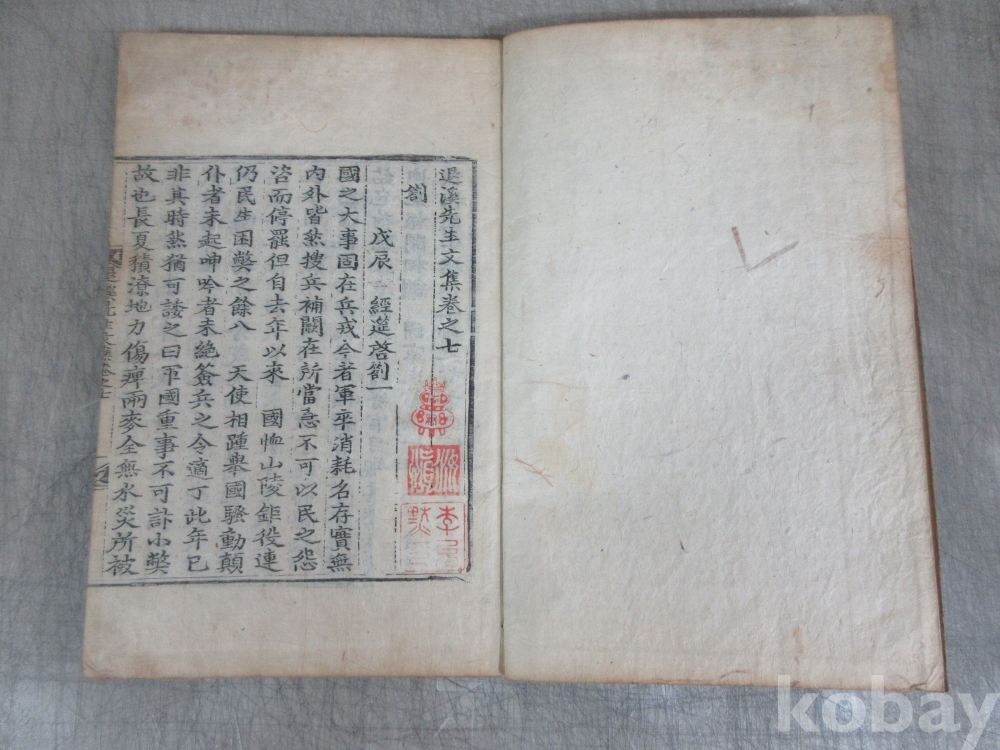 退溪先生文集卷之七
劄
戊辰 經筵啓劄一
國之大事固在兵戎今者軍卒消耗名存實無
內外皆然搜兵補闕在所當急不可以民之怨
咨而停罷但自去年以來 國恤山陵鉅役連
仍民生困獘之餘八 天使相踵舉國騷動顛
仆者未起呻吟者未絶簽兵之令適丁此年已
非其時然猶可諉之曰軍國重事不可計小獘
故也長夏積潦地力傷瘅兩麥全無水災所被
kobay